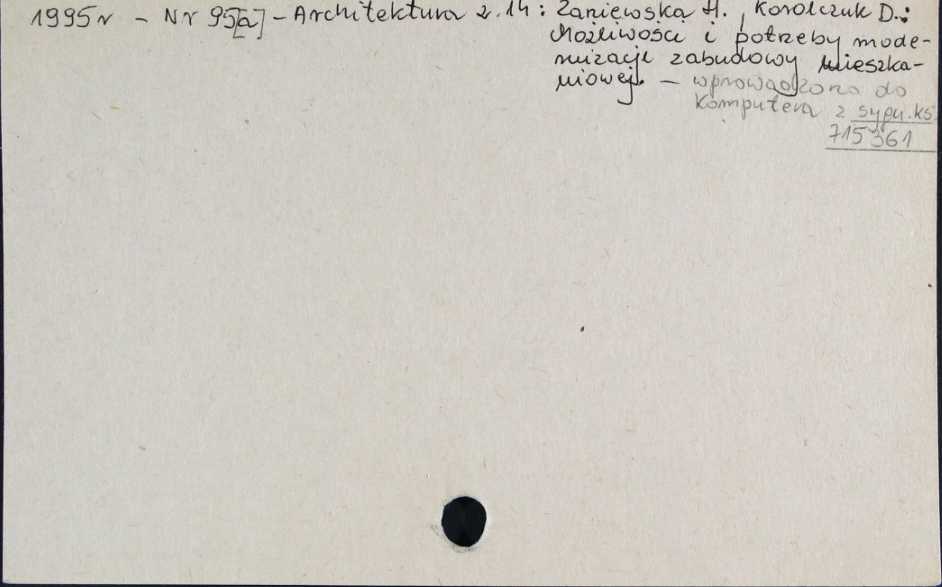 1995r - Nr 95[a] - Architektura z. 14: Zaniewska H., Korolczuk D.:
Możliwości i potrzeby mode-
rnizacji zabudowy mieszka-
niowej. - wprowadzono do
komputera z sygn. ks.
715361